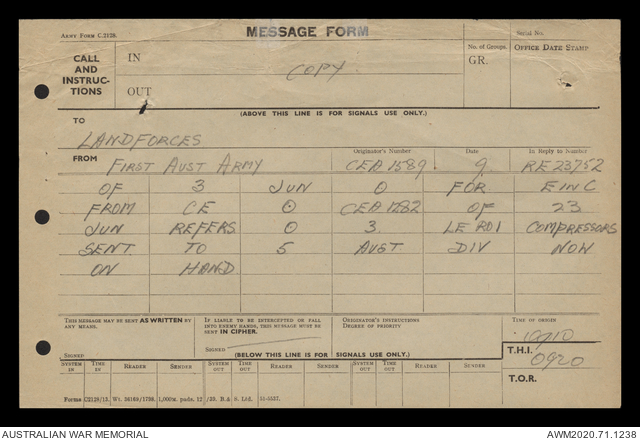 ARMY FORM C.2128.
MESSAGE FORM
Serial No.
CALL AND INSTRUC- TIONS
IN
COPY
No. of Groups.
OFFICE DATE STAMP
GR.
OUT
(ABOVE THIS LINE IS FOR SIGNALS USE ONLY.)
TO
LANDFORCES
FROM
Originator's Number
Date
In Reply to Number
FIRST AUST ARMY CEA 1589 9 RE 23752
OF 3 JUN O FOR E IN C
FROM CE O CEA 1282 OF 23
JUN REFERS O 3 LE ROI COMPRESSORS
SENT TO 5 AUST DIV NOW
ON HAND
THIS MESSAGE MAY BE SENT AS WRITTEN BY ANY MEANS.
IF LIABLE TO BE INTERCEPTED OR FALL INTO ENEMY HANDS, THIS MESSAGE MUST BE SENT IN CIPHER.
ORIGINATOR'S INSTRUCTIONS
DEGREE OF PRIORITY
TIME OF ORIGIN
T.H.I.
0920
SIGNED
SIGNED
(BELOW THIS LINE IS FOR SIGNALS USE ONLY.)
SYSTEM IN TIME IN READER SENDER SYSTEM OUT TIME OUT READER SENDER SYSTEM OUT TIME OUT READER SENDER
T.O.R.
Forms C2128/13. Wt. 36169/1798. 1,000M. pads. 12/39. B. & S. Ltd. 51-5537.
AUSTRALIAN WAR MEMORIAL
AWM2020.71.1238